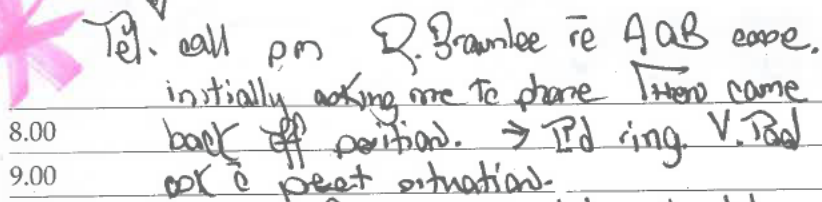 Tel. call pm D. Brownlee re AAB case.
initially asking me to phone Then came
8.00 back off position. → I'd ring. V.
9.00 situation.